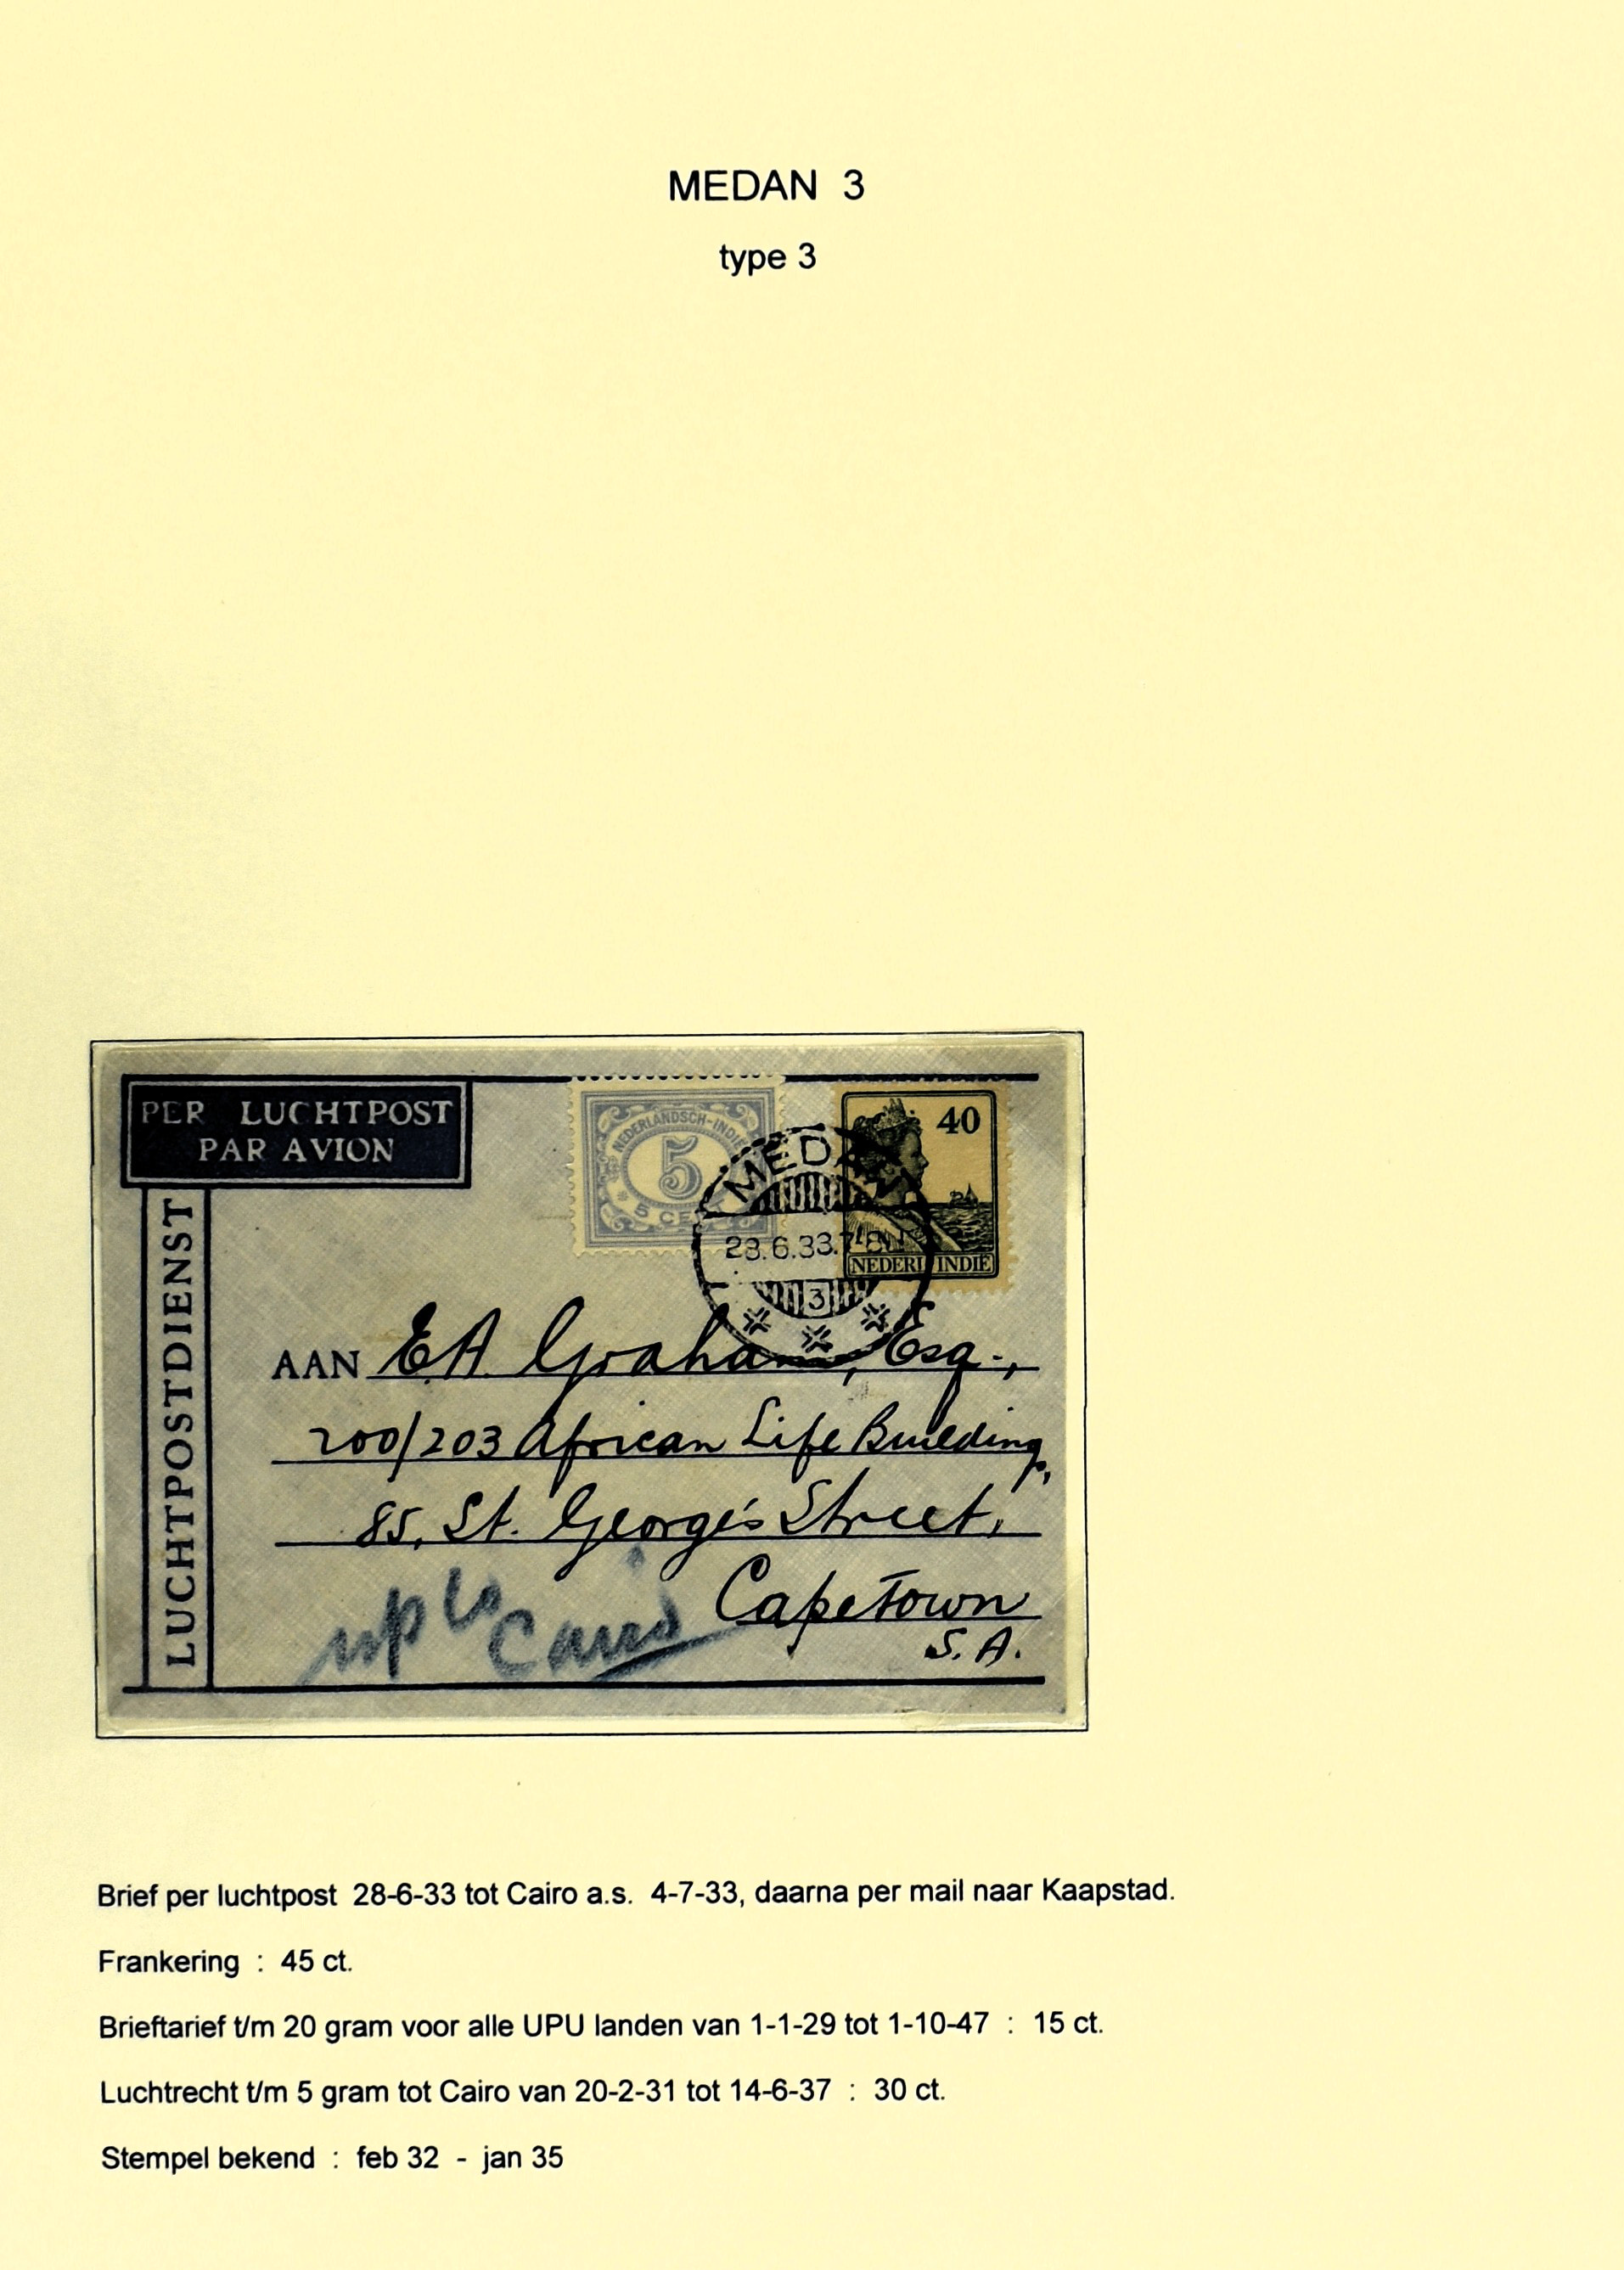 MEDAN 3
type 3
PER LUCHTPOST
PAR AVION
LUCHTPOSTDIENST
NEDERLANDSCH-INDIË
5
5 CENT
40
NEDERL. INDIË
MEDAN
28.6.33.7-8N
3
AAN E.A. Graham, Esq.,
200/203 African Life Building,
85, St. George's Street,
CapeTown
S.A.
up to
Cairo
Brief per luchtpost 28-6-33 tot Cairo a.s. 4-7-33, daarna per mail naar Kaapstad.
Frankering : 45 ct.
Brieftarief t/m 20 gram voor alle UPU landen van 1-1-29 tot 1-10-47 : 15 ct.
Luchtrecht t/m 5 gram tot Cairo van 20-2-31 tot 14-6-37 : 30 ct.
Stempel bekend : feb 32 - jan 35